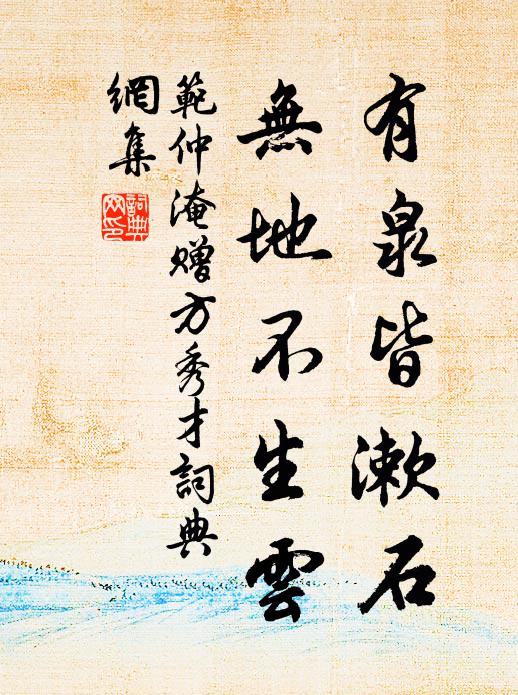 有泉皆漱石
無地不生雲
範仲淹赠方秀才詞典
網集
詞典
网印